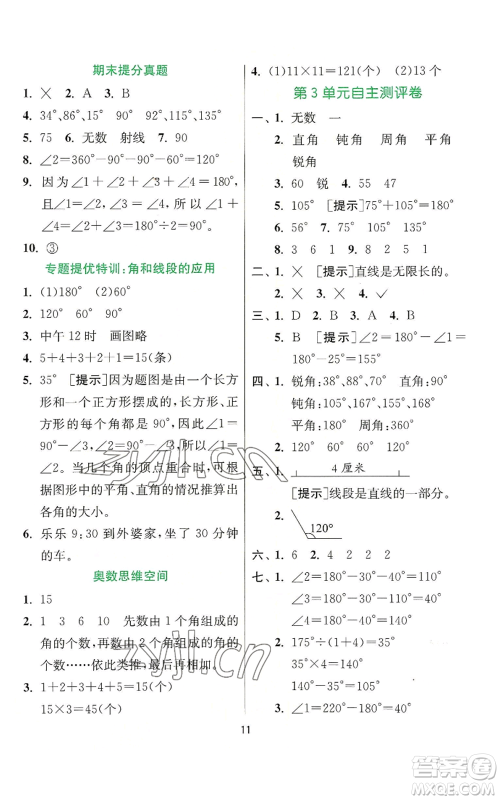 期末提分真题
1. ✕  2. A  3. B
4. 34°、86°、15°  90°  112°、135°
5. 75  6. 无数  射线  7. 90
8. ∠2=360°-90°-90°-60°=120°
9. 因为∠1+∠2+∠3+∠4=360°，
且∠1+∠2=∠3+∠4，所以∠1+
∠4=∠2+∠3=180°÷2=90°。
10. ③
专题提优特训：角和线段的应用
1. (1)180°  (2)60°
2. 120°  60°  90°
3. 中午12时  画图略
4. 5+4+3+2+1=15(条)
5. 35°  [提示]因为题图是由一个长方
形和一个正方形摆成的，长方形、正
方形的每个角都是90°，所以∠1=
90°-∠3，∠2=90°-∠3，所以∠1=
∠2。当几个角的顶点重合时，可根
据图形中的平角、直角的情况推算出
各角的大小。
6. 乐乐9:30到外婆家，坐了30分钟
的车。
奥数思维空间
1. 15
2. 1  3  6  10  先数由1个角组成的
角的个数，再数由2个角组成的角
的个数……依此类推。
3. 1+2+3+4+5=15(个)
15×3=45(个)
4. (1)11×11=121(个)  (2)13个
第3单元自主测评卷
一、1. 无数  一
2. 直角  钝角  周角  平角
锐角
3. 60  锐  4. 55  47
5. 105°  [提示]75°+105°=180°
6. 56°  7. 105°  135°
8. 3  6  1  9. 8  5  2  1
二、1. ✕  [提示]直线是无限长的。
2. ✕  3. ✕  4. ✓
三、1. D  2. B  3. A  4. B
5. B  [提示]∠2=180°-∠1=
180°-25°=155°
四、1. 锐角：38°、88°、70°
钝角：105°、167°、155°、168°
平角：180°  直角：90°
2. 120°  60°  60°  120°
五、1. 4厘米
[提示]线段是直线的一部分。
2. 120°
六、1. 6  2. 20
七、1. ∠2=180°-∠1=180°-140°=40°
∠3=180°-∠2=180°-40°=140°
∠4=180°-∠1=180°-140°=40°
2. 175°÷(1+4)=35°
35°×4=140°
3. ∠2=180°-90°-50°=40°
∠1=180°-40°=140°
11
zyjl.cn
zyjl.cn